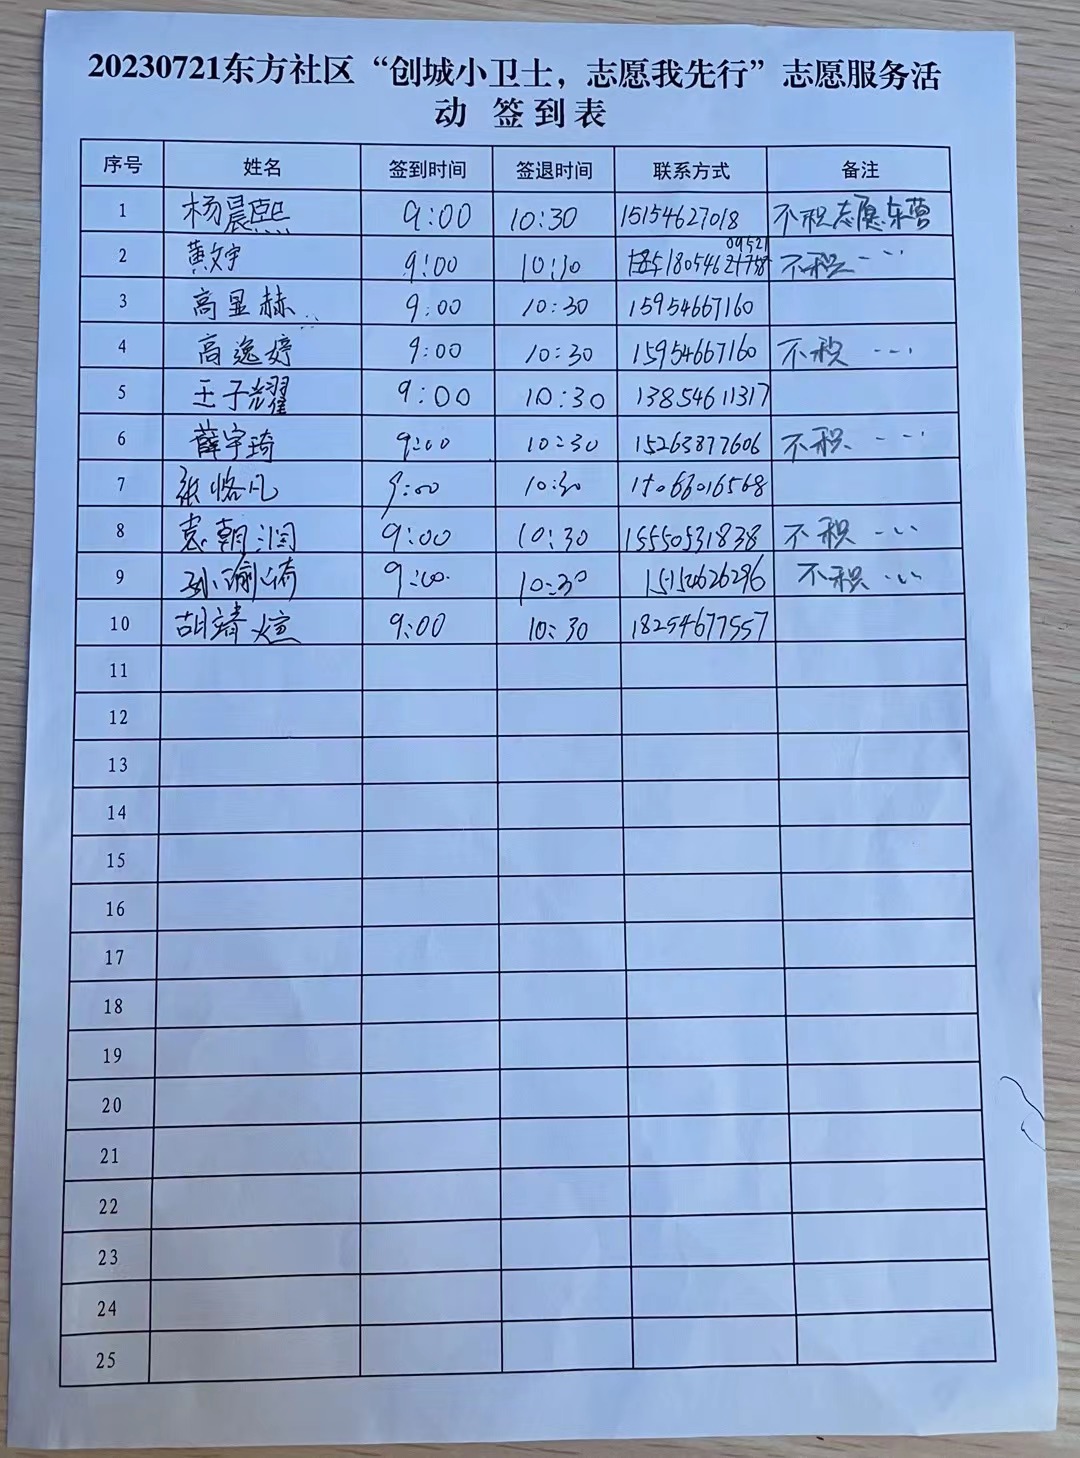 20230721东方社区“创城小卫士，志愿我先行”志愿服务活
动 签到表
序号 姓名 签到时间 签退时间 联系方式 备注
1 杨晨熙 9:00 10:30 15154627018 不积志愿东营
2 黄文宇 9:00 10:30 180546 09521 不积 ...
3 高显赫 9:00 10:30 15954667160
4 高逸婷 9:00 10:30 15954667160 不积 ...
5 王子耀 9:00 10:30 13854611317
6 薛宇琦 9:00 10:30 15263877606 不积 ...
7 张恪凡 9:00 10:30 15066016568
8 袁朝润 9:00 10:30 15550531838 不积 ...
9 孙瑜 9:00 10:30 不积 ...
10 胡靖煊 9:00 10:30 18254677557
11
12
13
14
15
16
17
18
19
20
21
22
23
24
25